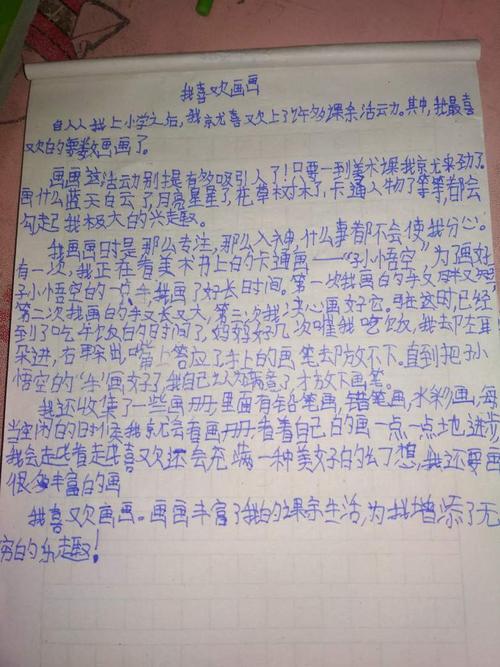 我喜欢画画
自从我上小学之后,我就喜欢上了许多课余活动。其中,我最喜
欢的要数画画了。
画画这活动别提有多吸引人了!只要一到美术课我就来劲了。
画什么蓝天白云了月亮星星了,花草树木了,卡通人物了等等都会
勾起我极大的兴趣。
我画画时是那么专注,那么入神,什么事都不会使我分心。
有一次,我正在看美术书上的卡通画——“孙小悟空”为了画好
孙小悟空的一点手我画了好长时间。第一次我画的手又
第二次我画的手又长又大,第三次我决心画好它。在这时,已经
到了吃午饭的时间了,妈妈好几次催我吃饭,我却左耳
朵进,右耳出,嘴上答应了手上的画笔却放不下。直到把孙小
悟空的“手”画好了我自己满意了,才放下画笔。
我还收集了一些画册,里面有铅笔画,蜡笔画,水彩画,每
当空闲的时候我就会看画册,看着自己的画一点一点地进步
我会越看越喜欢还会充满一种美好的幻想,我还要画
很多丰富的画
我喜欢画画。画画丰富了我的课余生活,为我增添了无
穷的乐趣!